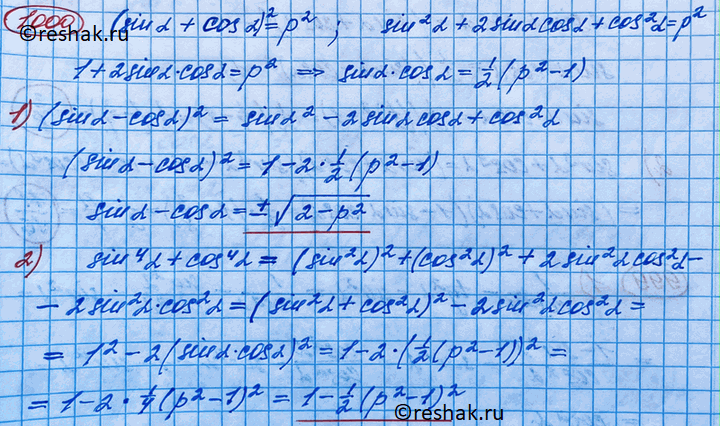 1000 (sinα + cosα)²=p² ; sin²α+2sinαcosα+cos²α=p²
©reshak.ru
1+2sinα·cosα=p² ⇒ sinα·cosα=½(p²-1)
1) (sinα-cosα)² = sinα² - 2sinαcosα+cos²α
(sinα-cosα)² = 1-2·½(p²-1)
sinα-cosα=±√(2-p²)
2) sin⁴α+cos⁴α = (sin²α)²+(cos²α)²+2sin²αcos²α-
-2sin²α·cos²α=(sin²α+cos²α)²-2sin²αcos²α=
= 1²-2(sinα·cosα)²=1-2·(½(p²-1))²=
=1-2·¼(p²-1)²=1-½(p²-1)²
©reshak.ru